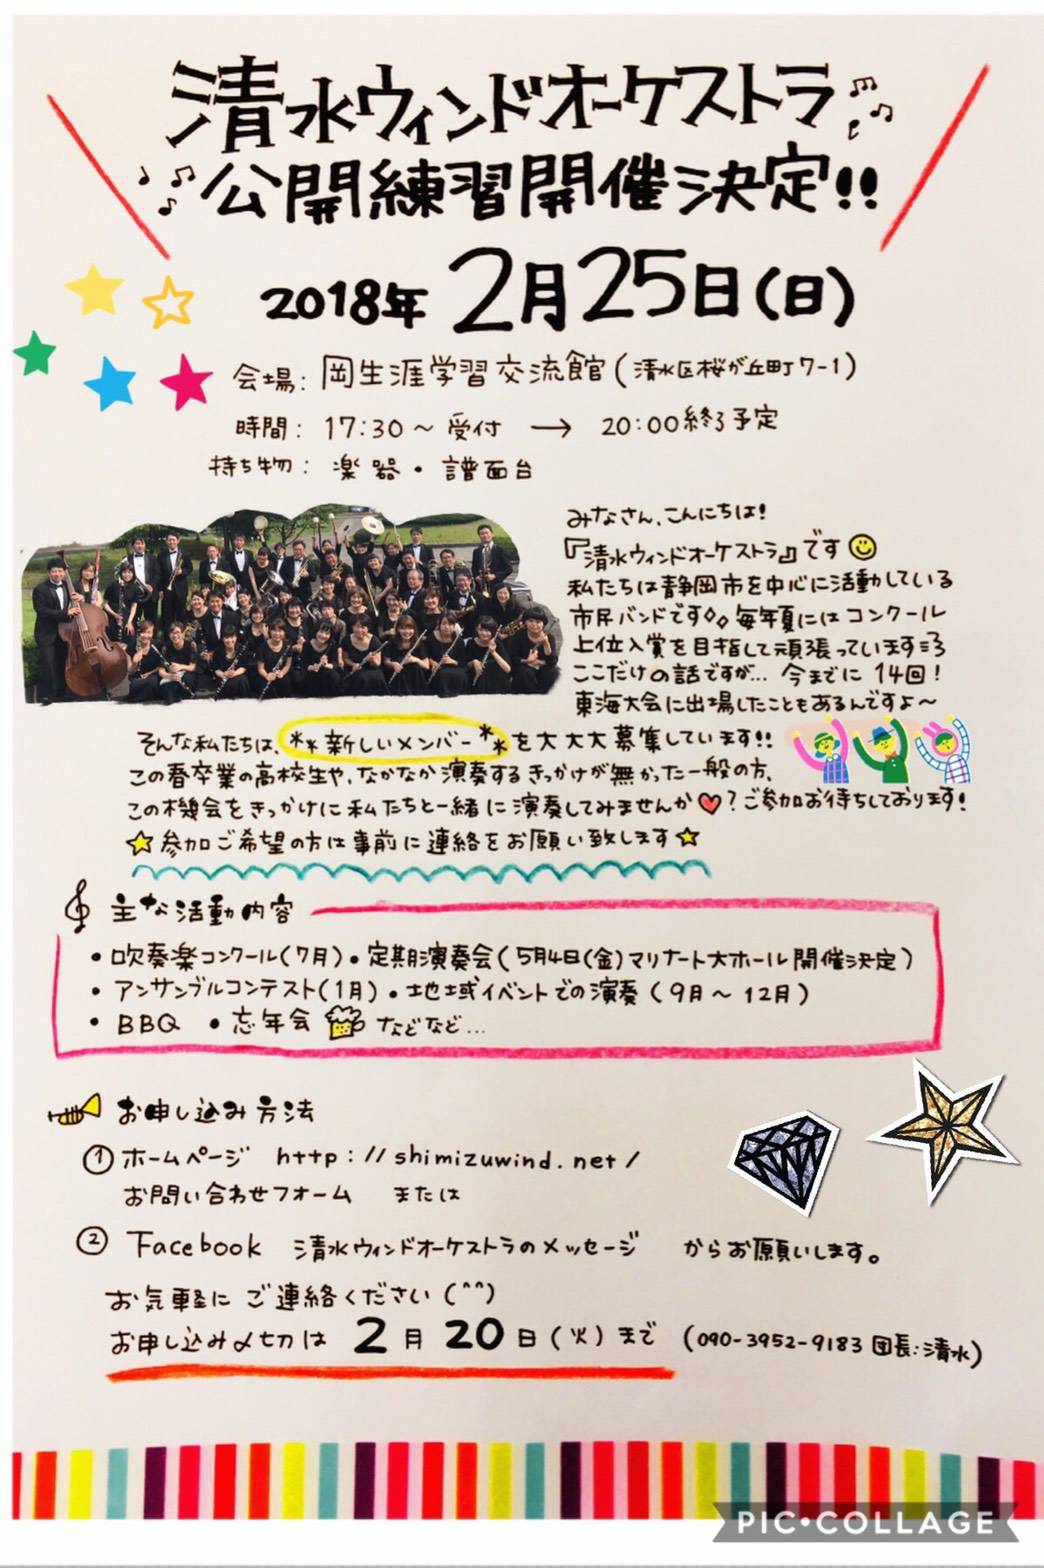 清水ウィンドオーケストラ
公開練習開催決定!!
2018年 2月25日(日)
会場: 岡生涯学習交流館 (清水区桜が丘町7-1)
時間: 17:30～受付 → 20:00終了予定
持ち物: 楽器・譜面台
みなさん、こんにちは!
『清水ウィンドオーケストラ』です
私たちは静岡市を中心に活動している
市民バンドです。毎年夏にはコンクール
上位入賞を目指して頑張っています
ここだけの話ですが… 今までに 14回!
東海大会に出場したこともあるんですよ～
そんな私たちは、**新しいメンバー**を大大大募集しています!!
この春卒業の高校生や、なかなか演奏するきっかけが無かった一般の方、
この機会をきっかけに私たちと一緒に演奏してみませんか♥?ご参加お待ちしております!
☆参加ご希望の方は事前に連絡をお願い致します☆
主な活動内容
・吹奏楽コンクール(7月)・定期演奏会(5月4日(金)マリナート大ホール開催決定)
・アンサンブルコンテスト(1月)・地域イベントでの演奏(9月～12月)
・BBQ ・忘年会 などなど…
お申し込み方法
①ホームページ http://shimizuwind.net/
お問い合わせフォーム または
② Facebook 清水ウィンドオーケストラのメッセージ からお願いします。
お気軽に ご連絡ください(^^)
お申し込み〆切は 2月20日(火)まで (090-3952-9183 団長:清水)
PIC•COLLAGE